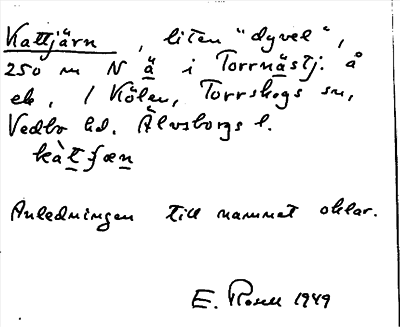 Kattjärn, liten "dyvel",
250 m N ä i Torrnästj. å
ek, / Kölen, Torrskogs sn,
Vedbo hd. Älvsborgs l.
kàtʃæn
Anledningen till namnet oklar.
E. Rosell 1949